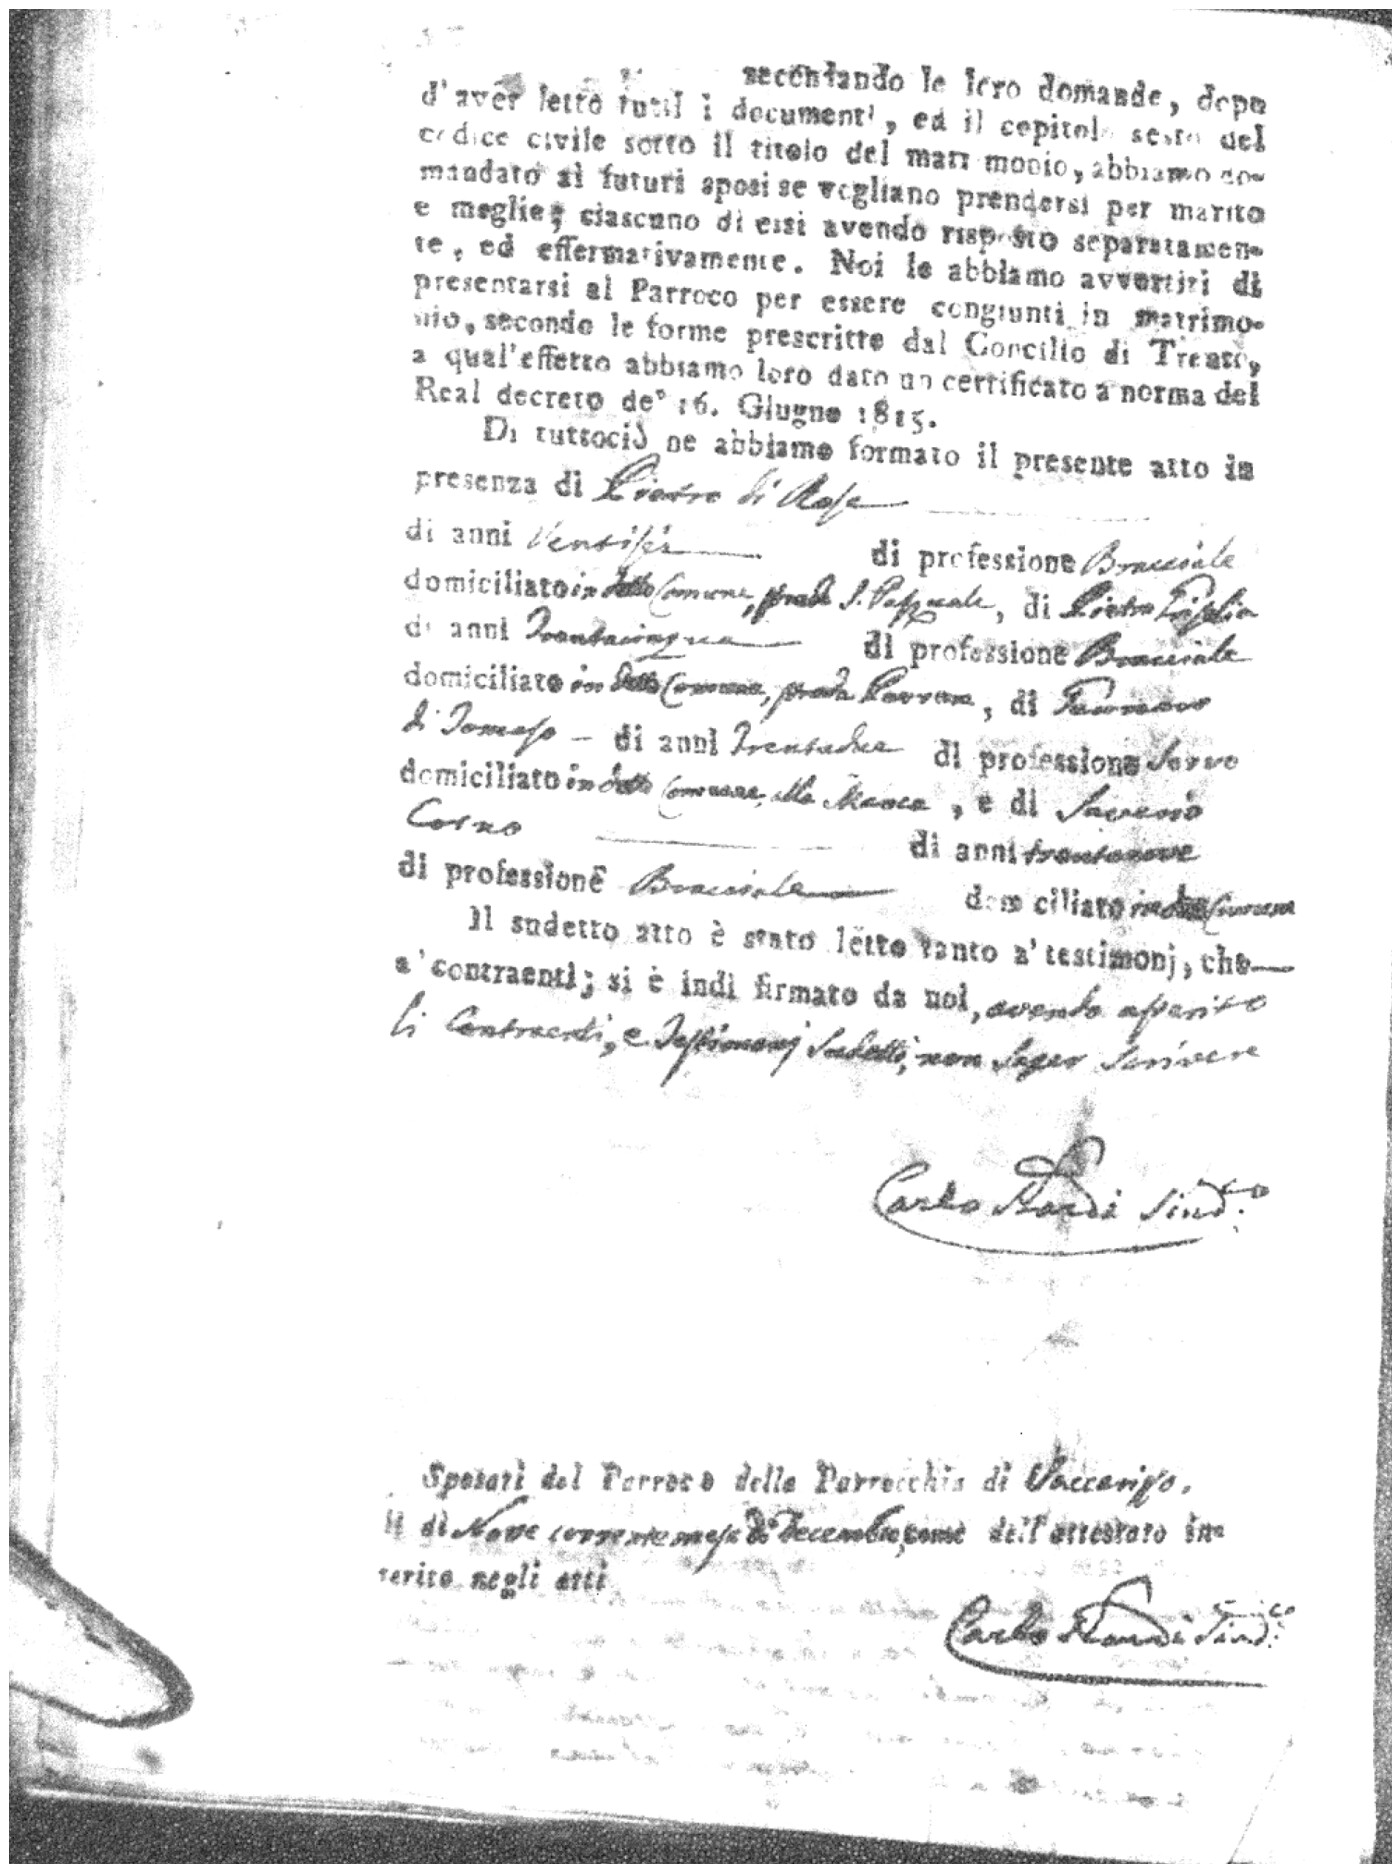 secondando le loro domande, dopo
d'aver letto tutti i documenti, ed il capitolo sesto del
codice civile sotto il titolo del matrimonio, abbiamo do-
mandato ai futuri sposi se vogliano prendersi per marito
e moglie; ciascuno di essi avendo risposto separatamen-
te, ed affermativamente. Noi le abbiamo avvertiti di
presentarsi al Parroco per essere congiunti in matrimo-
nio, secondo le forme prescritte dal Concilio di Trento,
a qual'effetto abbiamo loro dato un certificato a norma del
Real decreto de' 16. Giugno 1815.
Di tuttociò ne abbiamo formato il presente atto in
presenza di Pietro di Rose
di anni Ventisei di professione Bracciale
domiciliato in detto Comune, strada S. Pasquale, di Pietro
di anni Trentacinque di professione Bracciale
domiciliato in detto Comune, strada, di
di Tomaso di anni Trentadue di professione Servo
domiciliato in detto Comune, alla, e di Saverio
Corno di anni trentanove
di professione Bracciale domiciliato in detto Comune
Il sudetto atto è stato letto tanto a' testimonj, che
a' contraenti; si è indi firmato da noi, avendo asserito
li Contraenti, e Testimonj sudetti, non saper scrivere
Carlo Sind.co
Sposati dal Parroco della Parrocchia di Vaccarizzo.
li di Nove corrente mese di Decembre, come dall'attestato in-
serito negli atti
Carlo Sind.co